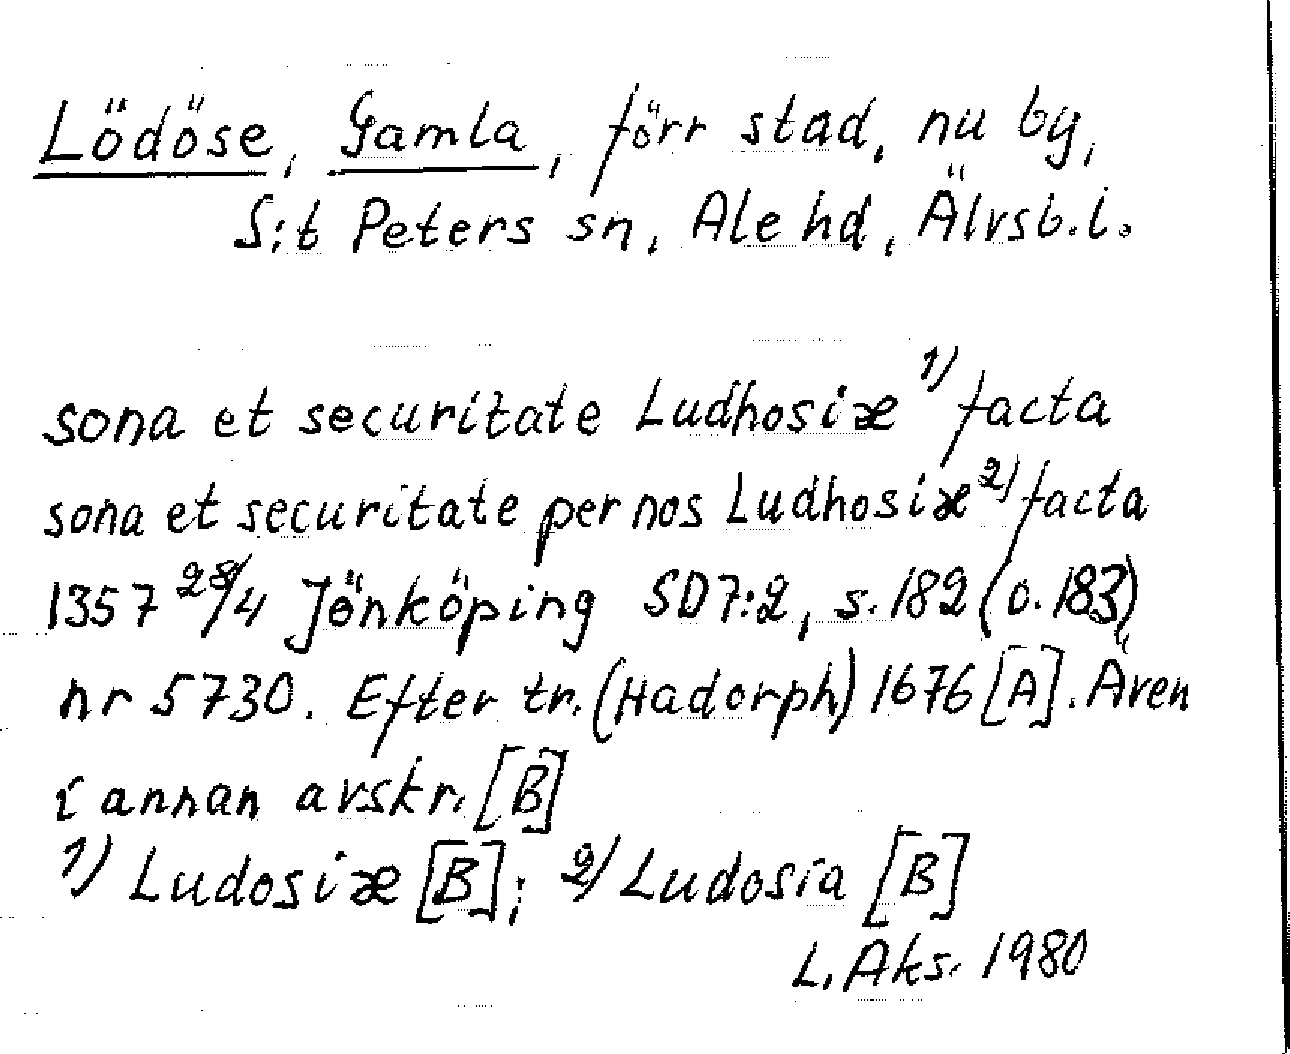 Lödöse, Gamla, förr stad, nu by,
S:t Peters sn, Ale hd, Älvsb.l.
sona et securitate Ludhosiæ 1) facta
sona et securitate per nos Ludhosiæ 2) facta
1357 28/4 Jönköping SD7:2, s. 182 (o. 183)
nr 5730. Efter tr. (Hadorph) 1676 [A]. Även
i annan avskr. [B]
1) Ludosiæ [B]; 2) Ludosia [B]
L. Aks. 1980